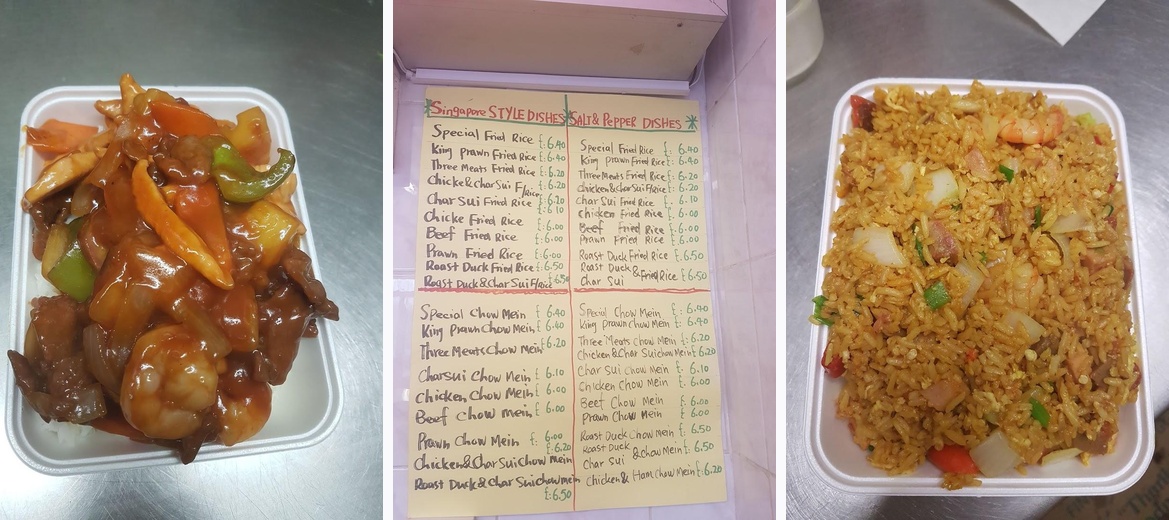 Singapore STYLE DISHES
Special Fried Rice £:6.40
King Prawn Fried Rice £:6.40
Three Meats Fried Rice £:6.20
Chicke&Char Sui F/Rice £:6.20
Char Sui Fried Rice £:6.20
£:6.10
Chicke Fried Rice £:6.00
Beef Fried Rice £:6.00
Prawn Fried Rice £:6.00
Roast Duck Fried Rice £:6.50
Roast Duck&Char Sui F/Rice £:6.50
Special Chow Mein £:6.40
King Prawn Chow Mein £:6.40
Three Meats Chow Mein £:6.20
Char sui Chow Mein £:6.10
Chicken Chow Mein £:6.00
Beef Chow mein £:6.00
Prawn Chow Mein £:6.00
£:6.20
Chicken&Char Sui Chow Mein
Roast Duck&Char Sui Chow mein
£:6.50
SALT& PEPPER DISHES
Special Fried Rice £:6.40
King Prawn Fried Rice £:6.40
Three Meats Fried Rice £:6.20
chicken&char Sui F/Rice £:6.20
char Sui Fried Rice £:6.10
chicken Fried Rice £:6.00
Beef Fried Rice £:6.00
Prawn Fried Rice £:6.00
Roast Duck Fried Rice £6.50
Roast Duck & Fried Rice £6.50
Char Sui
Special Chow Mein £:6.40
King Prawn Chow Mein £:6.40
Three Meats Chow Mein £:6.20
Chicken&Char Sui chow Mein £:6.20
Char Sui Chow Mein £:6.10
Chicken Chow Mein £:6.00
Beef Chow Mein £:6.00
Prawn Chow Mein £:6.00
Roast Duck Chow Mein £:6.50
Roast Duck & Chow Mein £:6.50
Char Sui
Chicken & Ham Chow Mein £:6.20